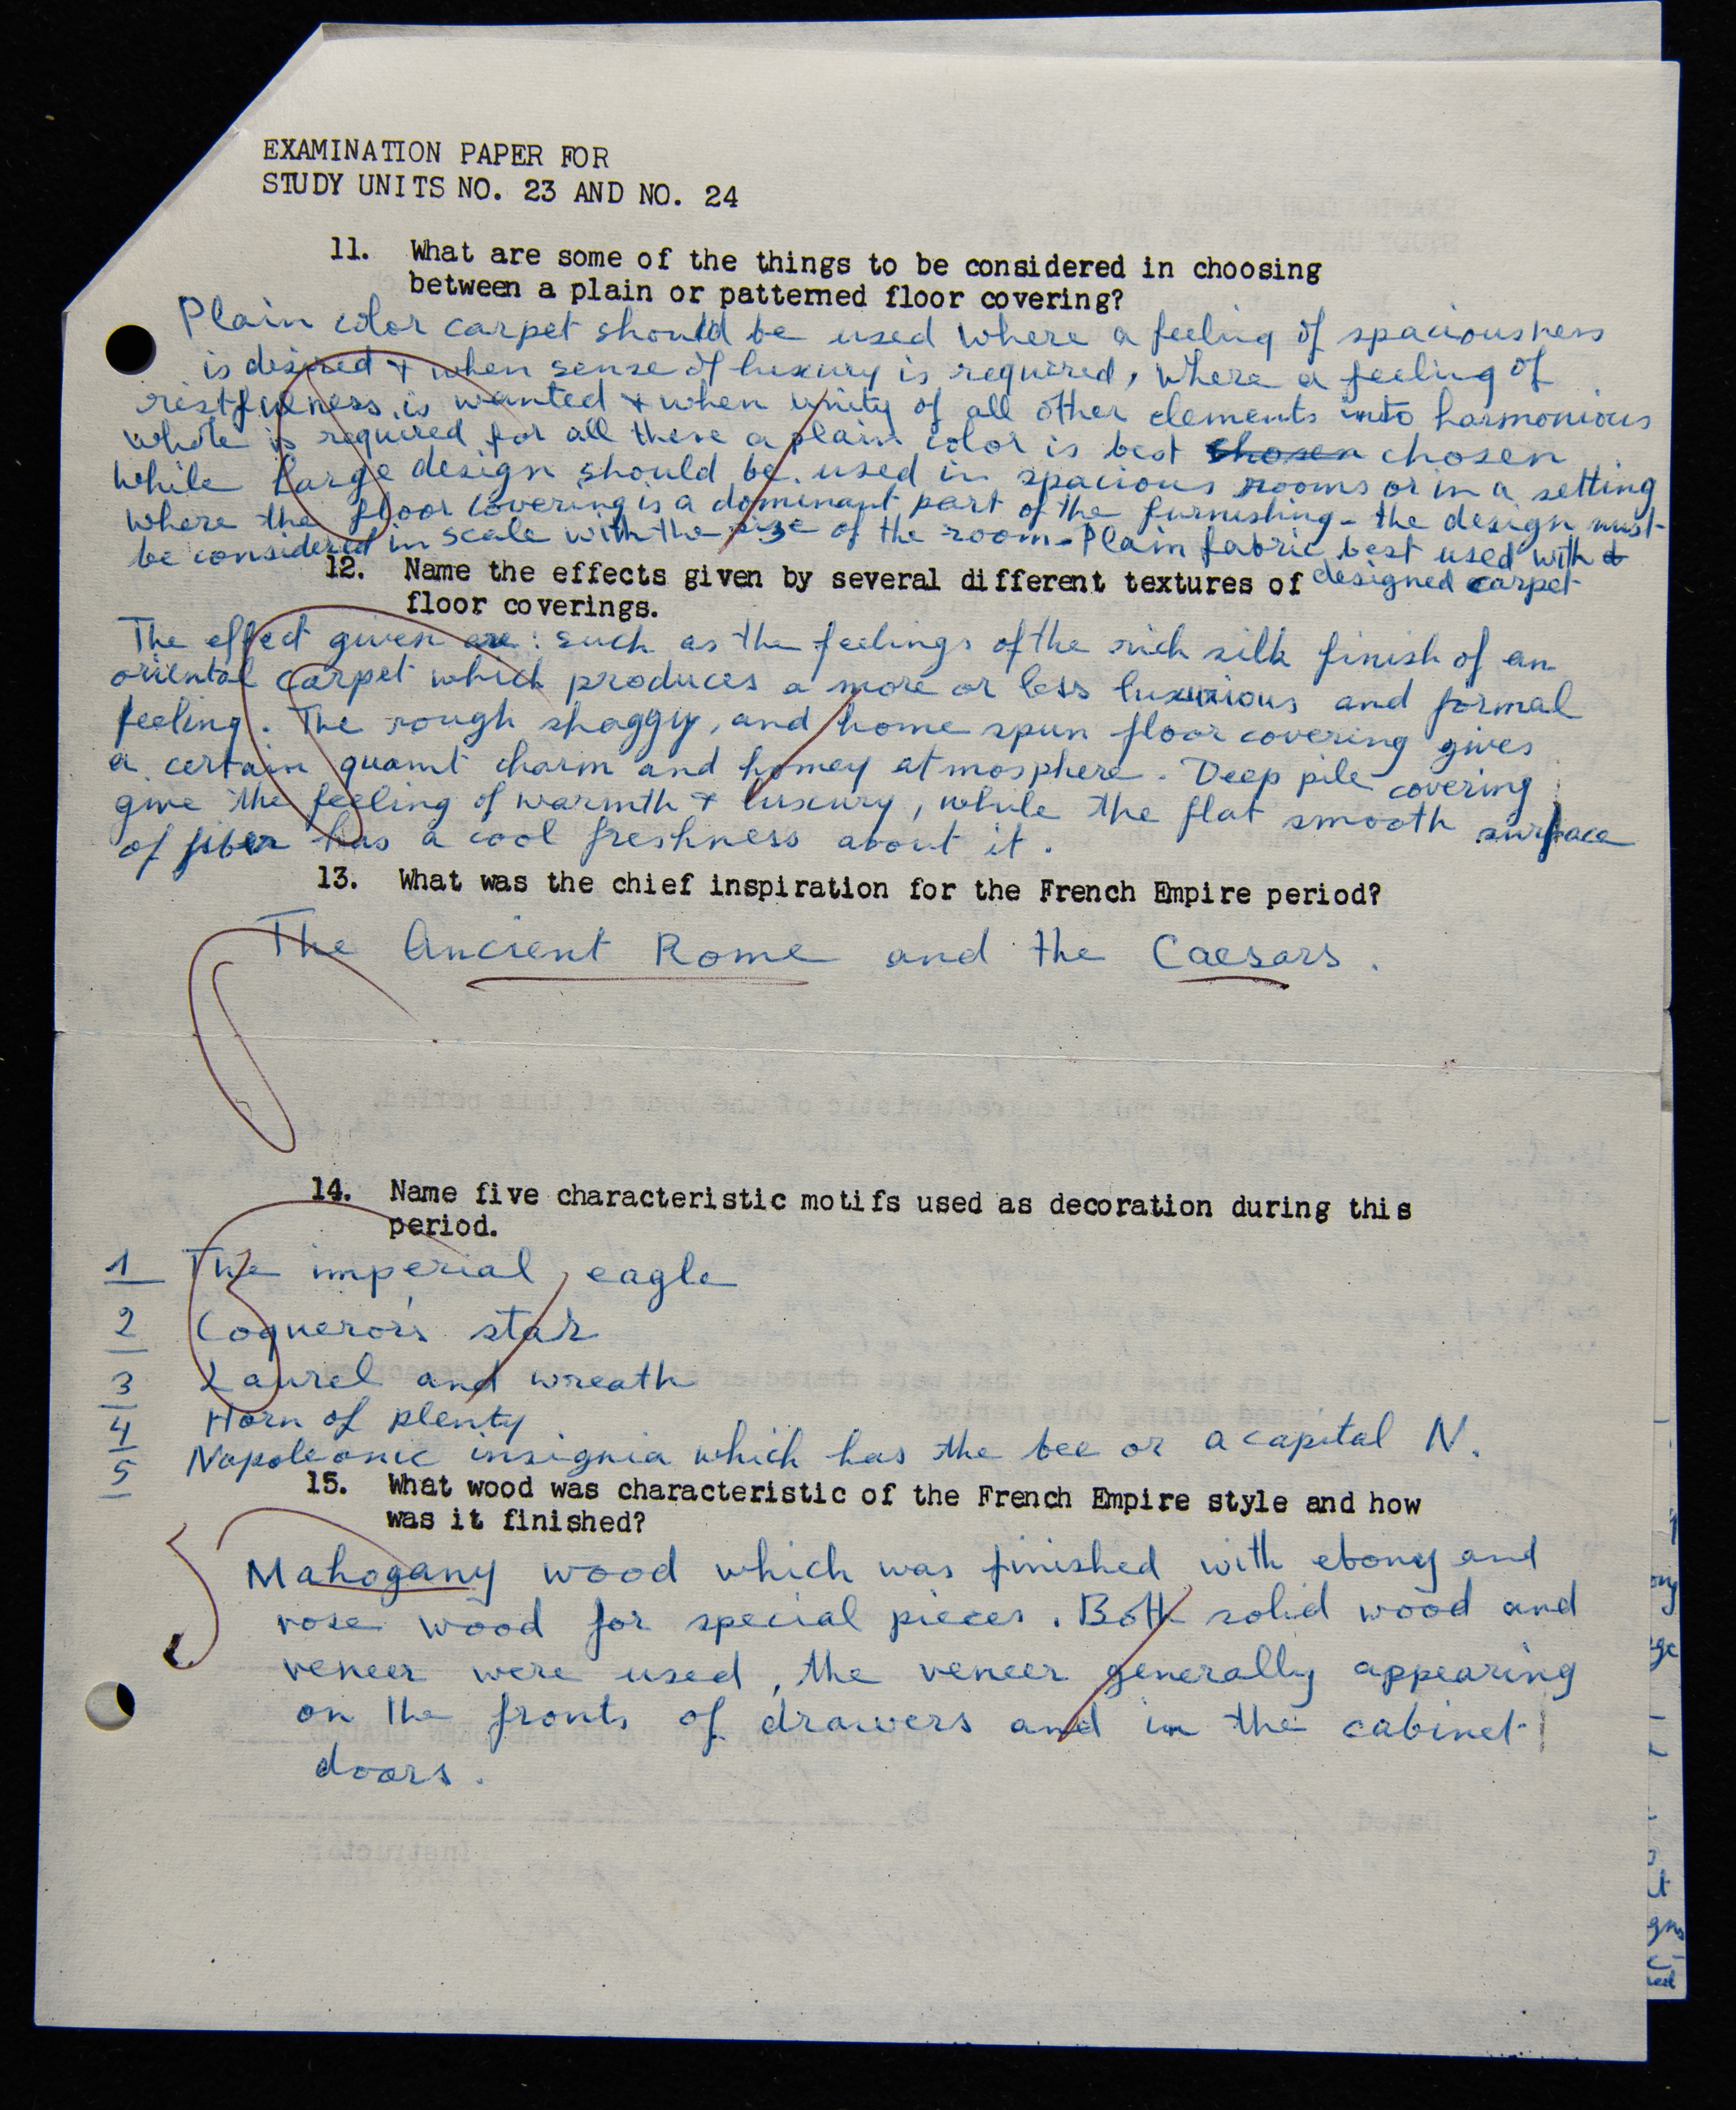 EXAMINATION PAPER FOR
STUDY UNITS NO. 23 AND NO. 24
11. What are some of the things to be considered in choosing
between a plain or patterned floor covering?
Plain color carpet should be used where a feeling of spaciousness
is desired + when sense of luxury is required, where a feeling of
restfulness is wanted + when unity of all other elements into harmonious
whole is required for all these a plain color is best chosen chosen
while large design should be used in spacious rooms or in a setting
where the floor covering is a dominant part of the furnishing - the design must
be considered in scale with the size of the room - Plain fabric best used with
designed carpet
12. Name the effects given by several different textures of
floor coverings.
The effect given are: such as the feelings of the rich silk finish of an
oriental carpet which produces a more or less luxurious and formal
feeling. The rough shaggy, and home spun floor covering gives
a certain quamt charm and homey atmosphere. Deep pile covering
give the feeling of warmth + luxury, while the flat smooth surface
of fiber has a cool freshness about it.
13. What was the chief inspiration for the French Empire period?
The Ancient Rome and the Caesars.
14. Name five characteristic motifs used as decoration during this
period.
1 The imperial eagle
2 Coqueror's star
3 Laurel and wreath
4 Horn of plenty
5 Napoleonic insignia which has the bee or a capital N.
15. What wood was characteristic of the French Empire style and how
was it finished?
Mahogany wood which was finished with ebony and
rose wood for special pieces. Both solid wood and
veneer were used, the veneer generally appearing
on the fronts of drawers and in the cabinet
doors.